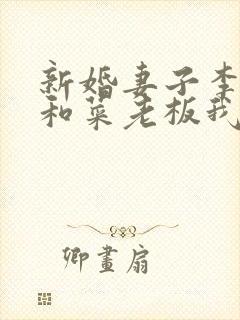 新婚妻子李
和菜老板我
卿畫扇